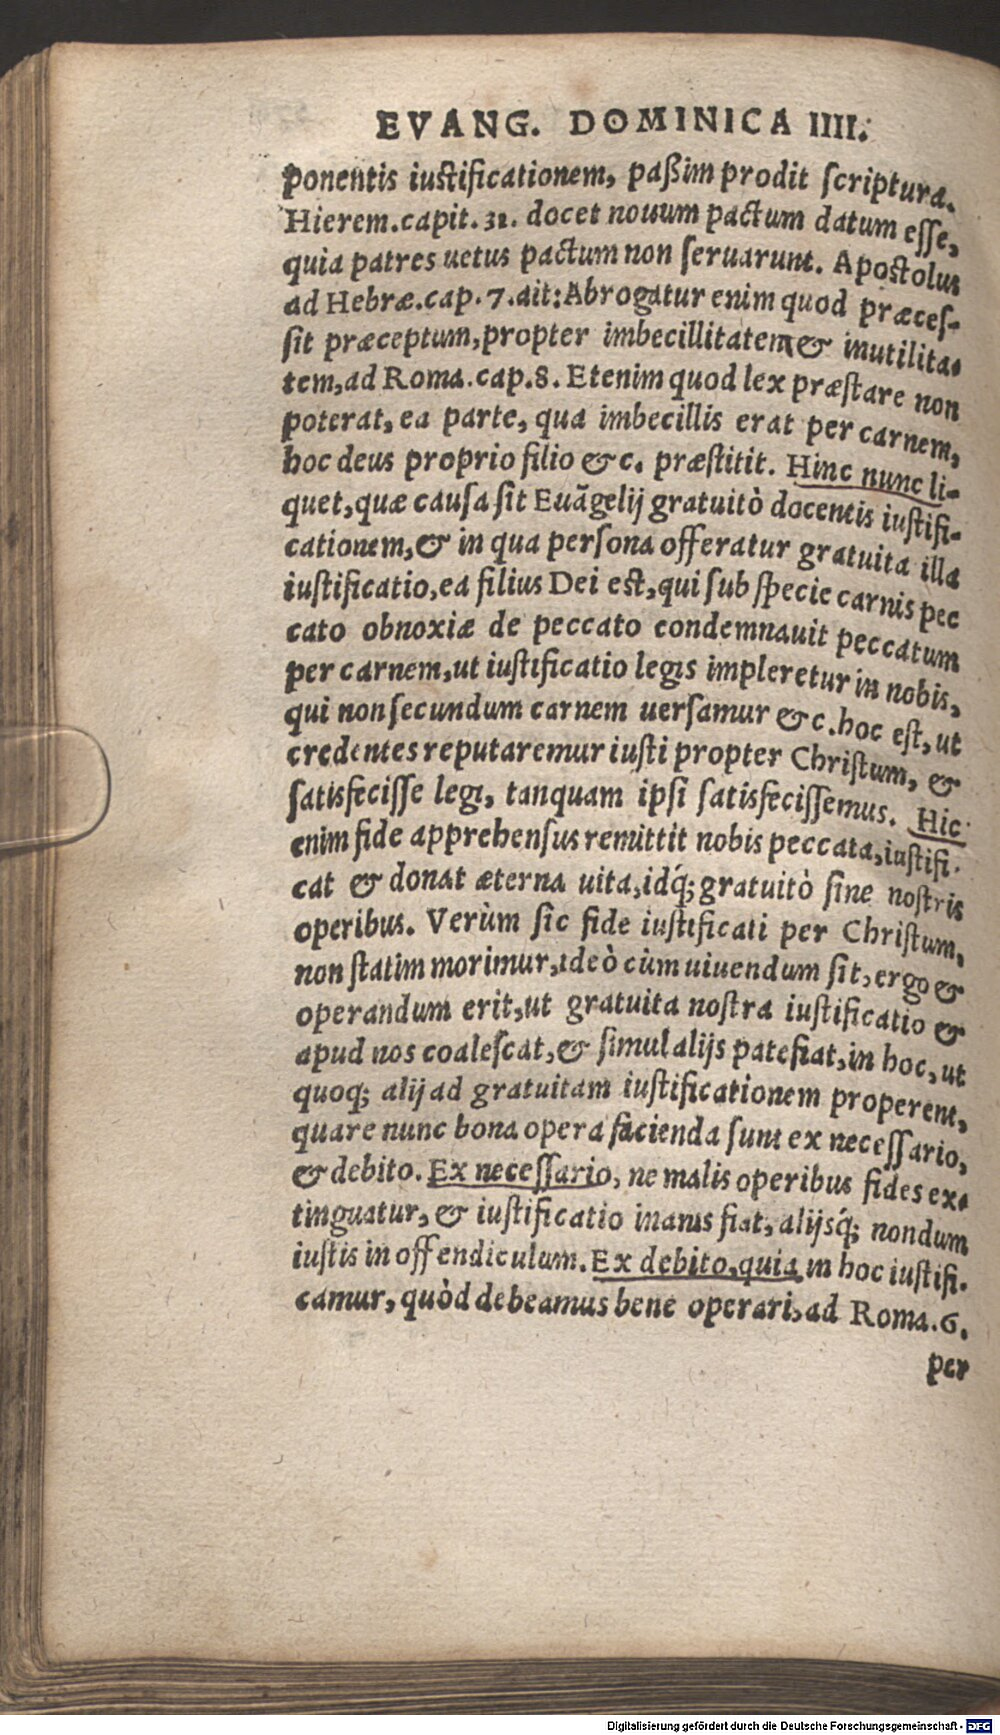 EVANG. DOMINICA IIII.
ponentis iustificationem, paßim prodit scriptura.
Hierem. capit. 31. docet nouum pactum datum esse,
quia patres uetus pactum non seruarunt. Apostolus
ad Hebræ. cap. 7. ait: Abrogatur enim quod præces-
sit præceptum, propter imbecillitatem & inutilita-
tem, ad Roma. cap. 8. Etenim quod lex præstare non
poterat, ea parte, qua imbecillis erat per carnem,
hoc deus proprio filio &c. præstitit. Hinc nunc li-
quet, quæ causa sit Euãgelij gratuitò docentis iustifi-
cationem, & in qua persona offeratur gratuita illa
iustificatio, ea filius Dei est, qui sub specie carnis pec
cato obnoxiæ de peccato condemnauit peccatum
per carnem, ut iustificatio legis impleretur in nobis,
qui non secundum carnem uersamur &c. hoc est, ut
credentes reputaremur iusti propter Christum, &
satisfecisse legi, tanquam ipsi satisfecissemus. Hic
enim fide apprehensus remittit nobis peccata, iustifi-
cat & donat æterna uita, idq́; gratuitò sine nostris
operibus. Verùm sic fide iustificati per Christum,
non statim morimur, ideò cùm uiuendum sit, ergo &
operandum erit, ut gratuita nostra iustificatio &
apud nos coalescat, & simul alijs patefiat, in hoc, ut
quoq; alij ad gratuitam iustificationem properent,
quare nunc bona opera facienda sunt ex necessario,
& debito. Ex necessario, ne malis operibus fides ex-
tinguatur, & iustificatio inanis fiat, alijsq́; nondum
iustis in offendiculum. Ex debito, quia in hoc iustifi-
camur, quòd debeamus bene operari, ad Roma. 6.
per
Digitalisierung gefördert durch die Deutsche Forschungsgemeinschaft - DFG